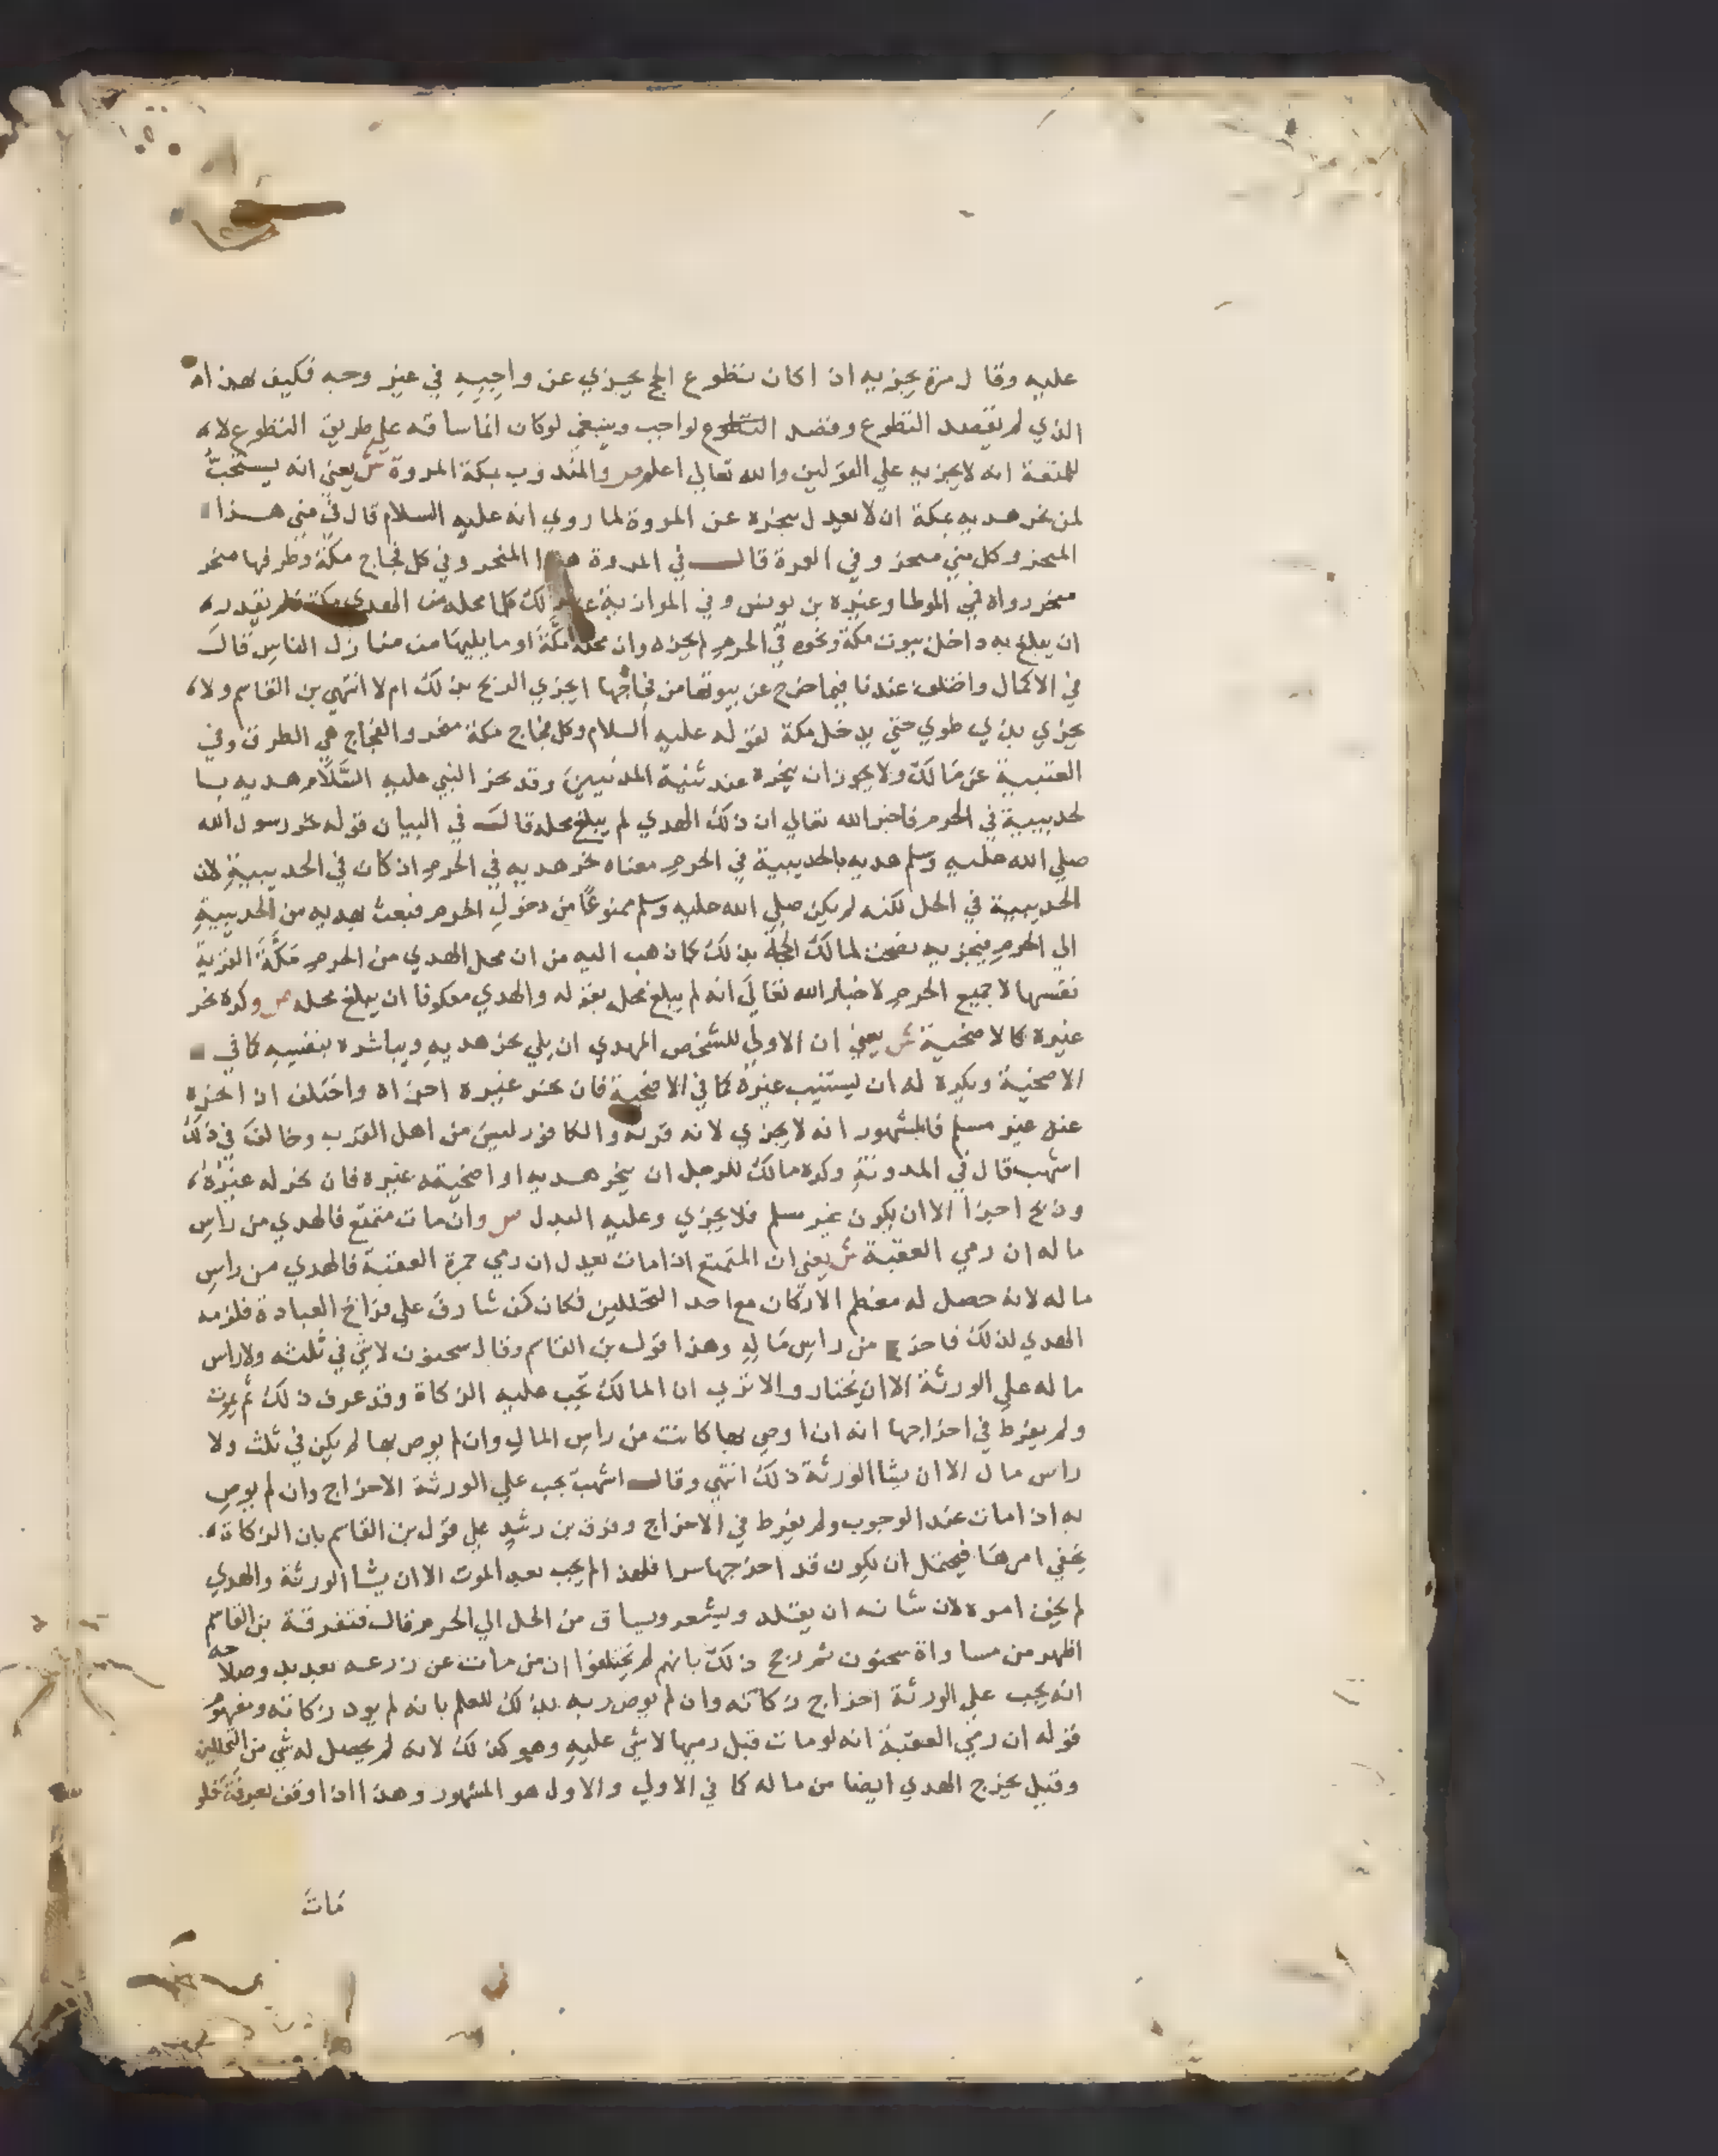 عليه وقال مرة يجزيه اذا كان تطوع الحج يجزي عن واجبه في غير وجه فكيف بهذاه
الذي لم يقصد التطوع وقصد التطوع لواجب وينبغي لوكان انما ساقه علي طريق التطوع لا
للمتعة انه لا يجزيه علي القولين والله تعالي اعلم ص والمندوب بمكة المروة ش يعني انه يستحب
لمن نحر هديه بمكة ان لا يعدل بنحره عن المروة لما روي انه عليه السلام قال في مني هذا
المنحر وكل مني منحر وفي العمرة قال في المروة هذا المنحر وفي كل فجاج مكة وطرقها منحر
منحر رواه في الموطا وغيره بن يونس وفي الموازية عن مالك كلما محله من الهدي مكة فلم يقدر
ان يبلغ به داخل بيوت مكة ونحوه في الحرم لم يجزه وان محله مكة او ما يليها من منازل الناس قال
في الاكمال واختلف عندنا فيما خرج عن بيوتها من فجاجها ايجزي الذبح بذلك ام لا انتهي بن القاسم ولا
يجزي بذي طوي حتي يدخل مكة لقوله عليه السلام وكل فجاج مكة منحر والفجاج هي الطرق وفي
العتبية عن مالك ولا يجوز ان ينحره عند ثنية المدنيين وقد نحر النبي عليه السلام هديه با
لحديبية في الحرم فاخبر الله تعالي ان ذلك الهدي لم يبلغ محله قال في البيان قوله نحر رسول الله
صلي الله عليه وسلم هديه بالحديبية في الحرم معناه نحر هديه في الحرم اذ كان في الحديبية لان
الحديبية في الحل لكنه لم يكن صلي الله عليه وسلم ممنوعا من دخول الحرم فبعث بهديه من الحديبية
الي الحرم فنحر به فصحت لمالك الحجة بذلك كما ذهب اليه من ان محل الهدي من الحرم مكة القرية
نفسها لا جميع الحرم لاخبار الله تعالي انه لم يبلغ محل بقوله والهدي معكوفا ان يبلغ محله ص وكره نحر
غيره كالاضحية ش يعني ان الاولي للشخص المهدي ان يلي نحر هديه ويباشره بنفسه كما في
الاضحية ويكره له ان يستنيب غيره كما في الاضحية فان نحر غيره اجزاه واختلف اذا نحره
عنه غير مسلم فالمشهور انه لا يجزي لانه قربة والكافر ليس من اهل القرب وخالف في ذلك
اشهب قال في المدونة وكره مالك للرجل ان ينحر هديه او اضحيته غيره فان نحر له غيره
وذبح اجزا الا ان يكون غير مسلم فلا يجزي وعليه البدل ص وان مات متمتع فالهدي من راس
ماله ان رمي العقبة ش يعني ان المتمتع اذا مات بعد ل ان رمي جمرة العقبة فالهدي من راس
ماله لانه حصل له معظم الاركان مع احد التحللين فكان كمن شارف علي فراغ العبادة فلزمه
الهدي لذلك فاخرج من راس ماله وهذا قول بن القاسم وقال سحنون لا شي في ثلثه ولا راس
ماله علي الورثة الا ان يختاروا الا تري ان المالك تجب عليه الزكاة وقد عرف ذلك ثم يموت
ولم يفرط في اخراجها انه ان اوصي بها كانت من راس المال وان لم يوص بها لم يكن في ثلث ولا
راس مال الا ان يشا الورثة ذلك انتهي وقال اشهب يجب علي الورثة الاخراج وان لم يوص
به اذا مات عند الوجوب ولم يفرط في الاخراج وفرق بن رشد علي قول بن القاسم بان الزكاة
يخفي امرها فيحتمل ان يكون قد اخرجها سرا فلهذا لم يجب بعد الموت الا ان يشا الورثة والهدي
لم يخف امره لان شانه ان يقلد ويشعر ويساق من الحل الي الحرم قال فتفرقة بن القاسم
اظهر من مساواة سحنون ثم رجح ذلك بانهم لم يختلفوا ان من مات عن زرعه بعد بدو صلاحه
انه يجب علي الورثة اخراج زكاته وان لم يوص به بذلك للعلم بانه لم يود زكاته ومفهوم
قوله ان رمي العقبة انه لو مات قبل رميها لا شي عليه وهو كذلك لانه لم يحصل له شي من التحللين
وقيل يخرج الهدي ايضا من ماله كما في الاولي والاول هو المشهور وهذا اذا وقف بعرفة فلو
مات